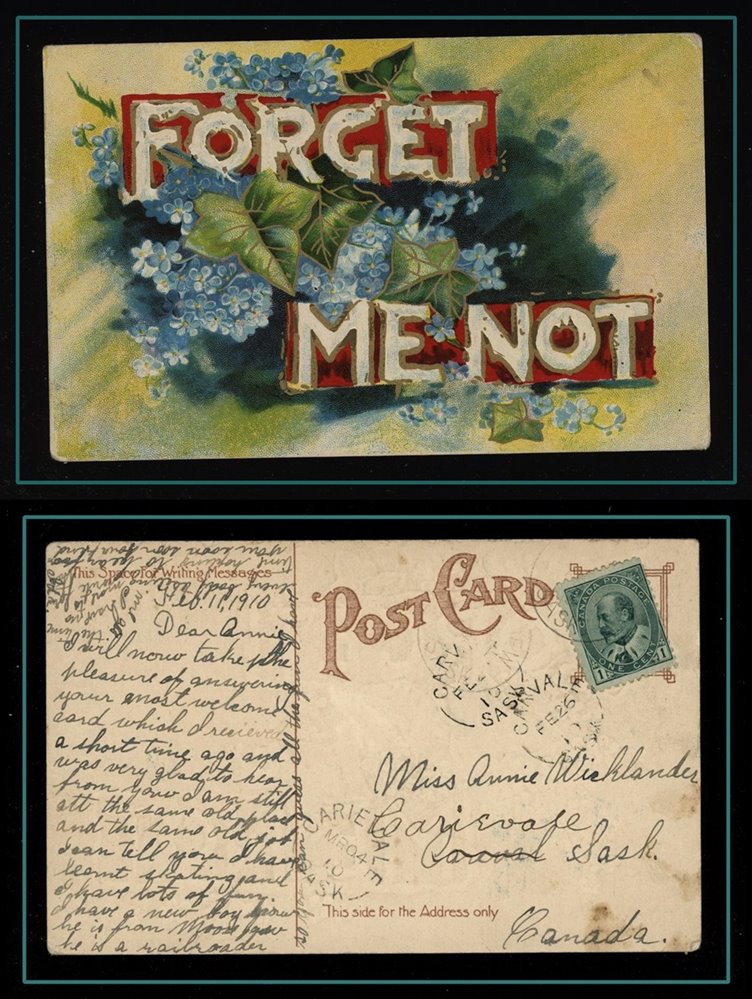 FORGET
ME NOT
This Space for Writing Messages
POST CARD
CANADA POSTAGE
1 ONE CENT 1
Feb. 11, 1910
Dear Annie
I will now take the
pleasure of answering
your most welcome
card which I recieved
a short time ago and
was very glad to hear
from you I am still
at the same old place
and the same old job
I can tell you I have
learnt skating and
I have lots of fun.
I have a new boy now
he is from Moose Jaw
he is a railroader
CARI
FE
10
SASK
CARIVALE
FE 26
SASK
Miss Annie Wicklander
Carievale
Sask.
Canada.
CARIEVALE
MR 04
10
SASK
This side for the Address only